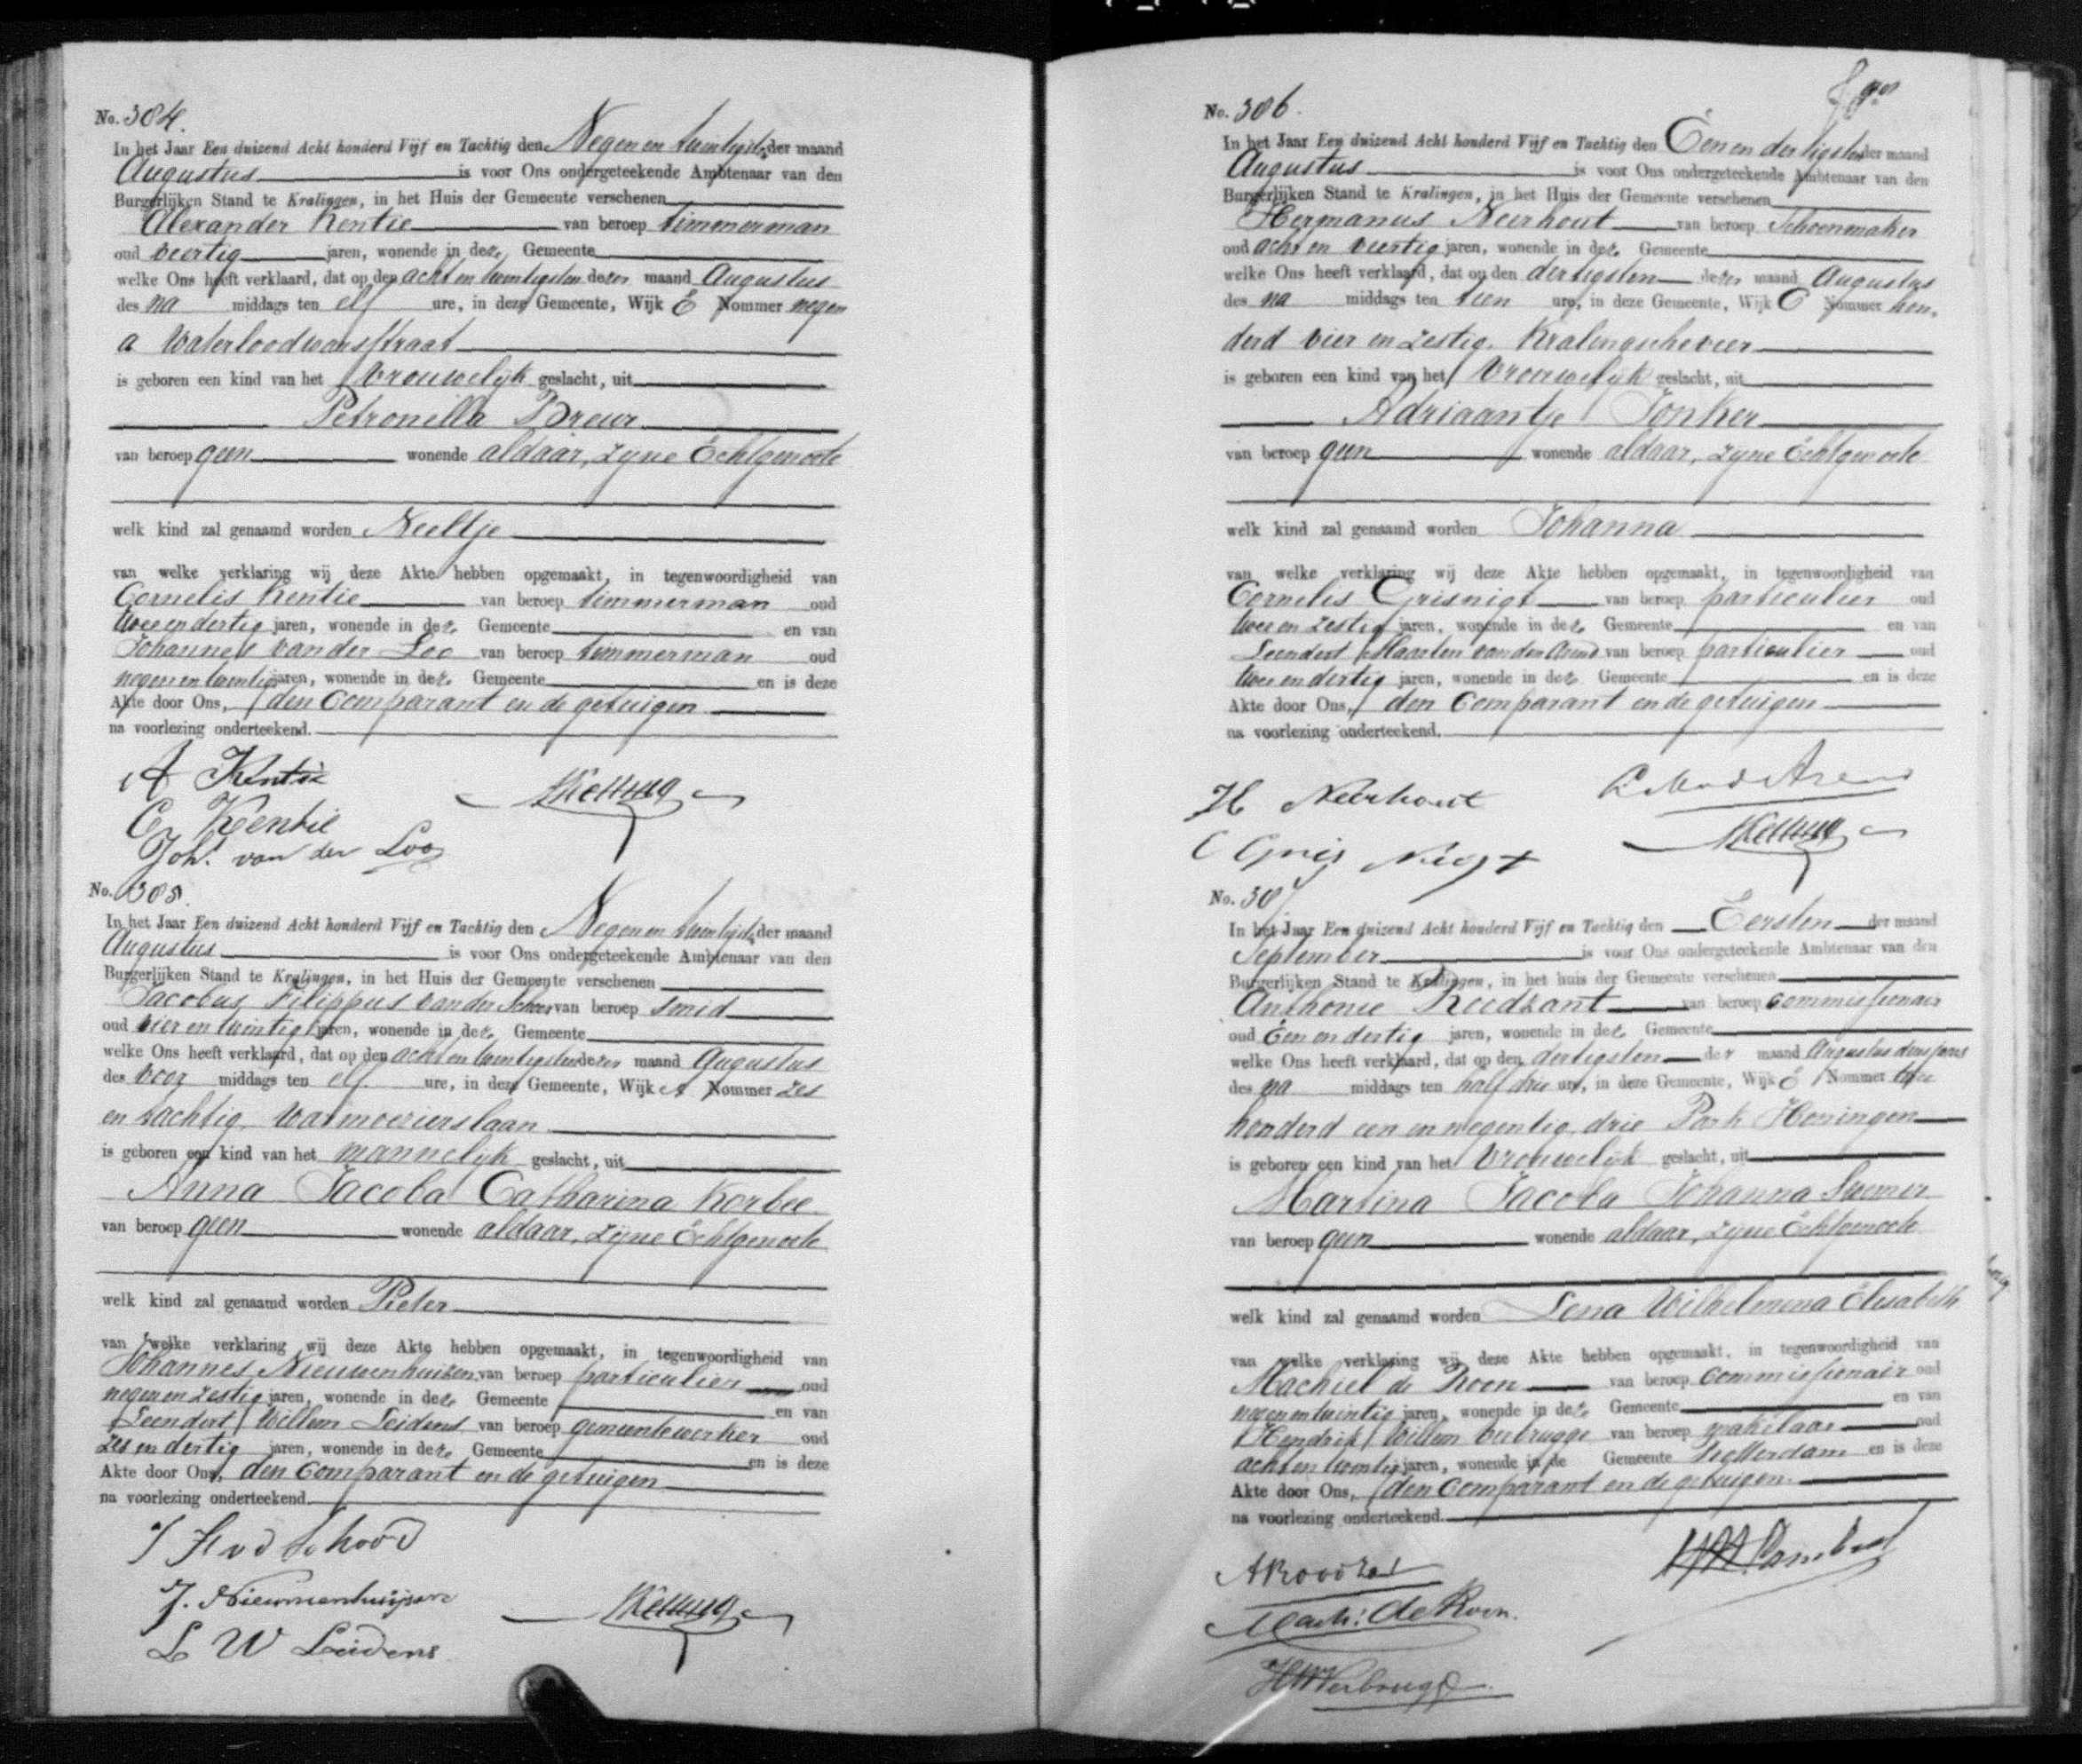 No. 384.
In het Jaar Een duizend Acht honderd Vijf en Tachtig den Negen en twintigsten der maand
Augustus is voor Ons ondergeteekende Ambtenaar van den
Burgerlijken Stand te Kralingen, in het Huis der Gemeente verschenen
Alexander Kentie van beroep timmerman
oud veertig jaren, wonende in deze Gemeente
welke Ons heeft verklaard, dat op den acht en twintigsten dezer maand Augustus
des na middags ten elf ure, in deze Gemeente, Wijk E Nommer negen
a
is geboren een kind van het Vrouwelijk geslacht, uit
Petronilla Breur
van beroep geen wonende aldaar, zijne Echtgenoote
welk kind zal genaamd worden Neeltje
van welke verklaring wij deze Akte hebben opgemaakt, in tegenwoordigheid van
Cornelis Kentie van beroep timmerman oud
twee en dertig jaren, wonende in deze Gemeente en van
Johannes van der Loo van beroep timmerman oud
negen en twintig jaren, wonende in deze Gemeente en is deze
Akte door Ons, den Comparant en de getuigen
na voorlezing onderteekend.
A Kentie
C Kentie
Joh. van der Loo
No. 385.
In het Jaar Een duizend Acht honderd Vijf en Tachtig den Negen en twintigsten der maand
Augustus is voor Ons ondergeteekende Ambtenaar van den
Burgerlijken Stand te Kralingen, in het Huis der Gemeente verschenen
Jacobus Filippus van der van beroep smid
oud vier en twintig jaren, wonende in deze Gemeente
welke Ons heeft verklaard, dat op den acht en twintigsten dezer maand Augustus
des voor middags ten elf ure, in deze Gemeente, Wijk A Nommer zes
en tachtig
is geboren een kind van het mannelijk geslacht, uit
Anna Jacoba Catharina Korbee
van beroep geen wonende aldaar, zijne Echtgenoote
welk kind zal genaamd worden Pieter
van welke verklaring wij deze Akte hebben opgemaakt, in tegenwoordigheid van
Johannes Nieuwenhuizen van beroep particulier oud
negen en zestig jaren, wonende in deze Gemeente en van
Leendert Willem Leidens van beroep gemeentewerker oud
zes en dertig jaren, wonende in deze Gemeente en is deze
Akte door Ons, den Comparant en de getuigen
na voorlezing onderteekend
J. Nieuwenhuijzen
L W Leidens
No. 386.
In het Jaar Een duizend Acht honderd Vijf en Tachtig den Een en dertigsten der maand
Augustus is voor Ons ondergeteekende Ambtenaar van den
Burgerlijken Stand te Kralingen, in het Huis der Gemeente verschenen
Hermanus Neerhout van beroep Schoenmaker
oud acht en veertig jaren, wonende in deze Gemeente
welke Ons heeft verklaard, dat op den dertigsten dezer maand Augustus
des na middags ten tien ure, in deze Gemeente, Wijk C Nommer hon,
derd vier en zestig. Kralingscheveer
is geboren een kind van het Vrouwelijk geslacht, uit
Adriaantje Jonker
van beroep geen wonende aldaar, zijne Echtgenoote
welk kind zal genaamd worden Johanna
van welke verklaring wij deze Akte hebben opgemaakt, in tegenwoordigheid van
Cornelis Grisnigt van beroep particulier oud
twee en zestig jaren, wonende in deze Gemeente en van
Leendert Maarten van den Arend van beroep particulier oud
twee en dertig jaren, wonende in deze Gemeente en is deze
Akte door Ons, den Comparant en de getuigen
na voorlezing onderteekend.
H Neerhout
C Gris Nigt
No. 387
In het Jaar Een duizend Acht honderd Vijf en Tachtig den Eersten der maand
September is voor Ons ondergeteekende Ambtenaar van den
Burgerlijken Stand te Kralingen, in het huis der Gemeente verschenen
Anthonie van beroep commissionair
oud Een en dertig jaren, wonende in deze Gemeente
welke Ons heeft verklaard, dat op den dertigsten der maand Augustus
des na middags ten half drie ure, in deze Gemeente, Wijk E Nommer twee
honderd een en negentig drie Park Honingen
is geboren een kind van het Vrouwelijk geslacht, uit
Martina Jacoba Johanna
van beroep geen wonende aldaar, zijne Echtgenoote
welk kind zal genaamd worden Lena Wilhelmina Elisabeth
van welke verklaring wij deze Akte hebben opgemaakt, in tegenwoordigheid van
Machiel de Koon van beroep commissionair oud
negen en twintig jaren, wonende in deze Gemeente en van
Hendrik Willem Verbrugge van beroep makelaar oud
acht en twintig jaren, wonende in de Gemeente Rotterdam en is deze
Akte door Ons, den Comparant en de getuigen.
na voorlezing onderteekend.
HWVerbrugge